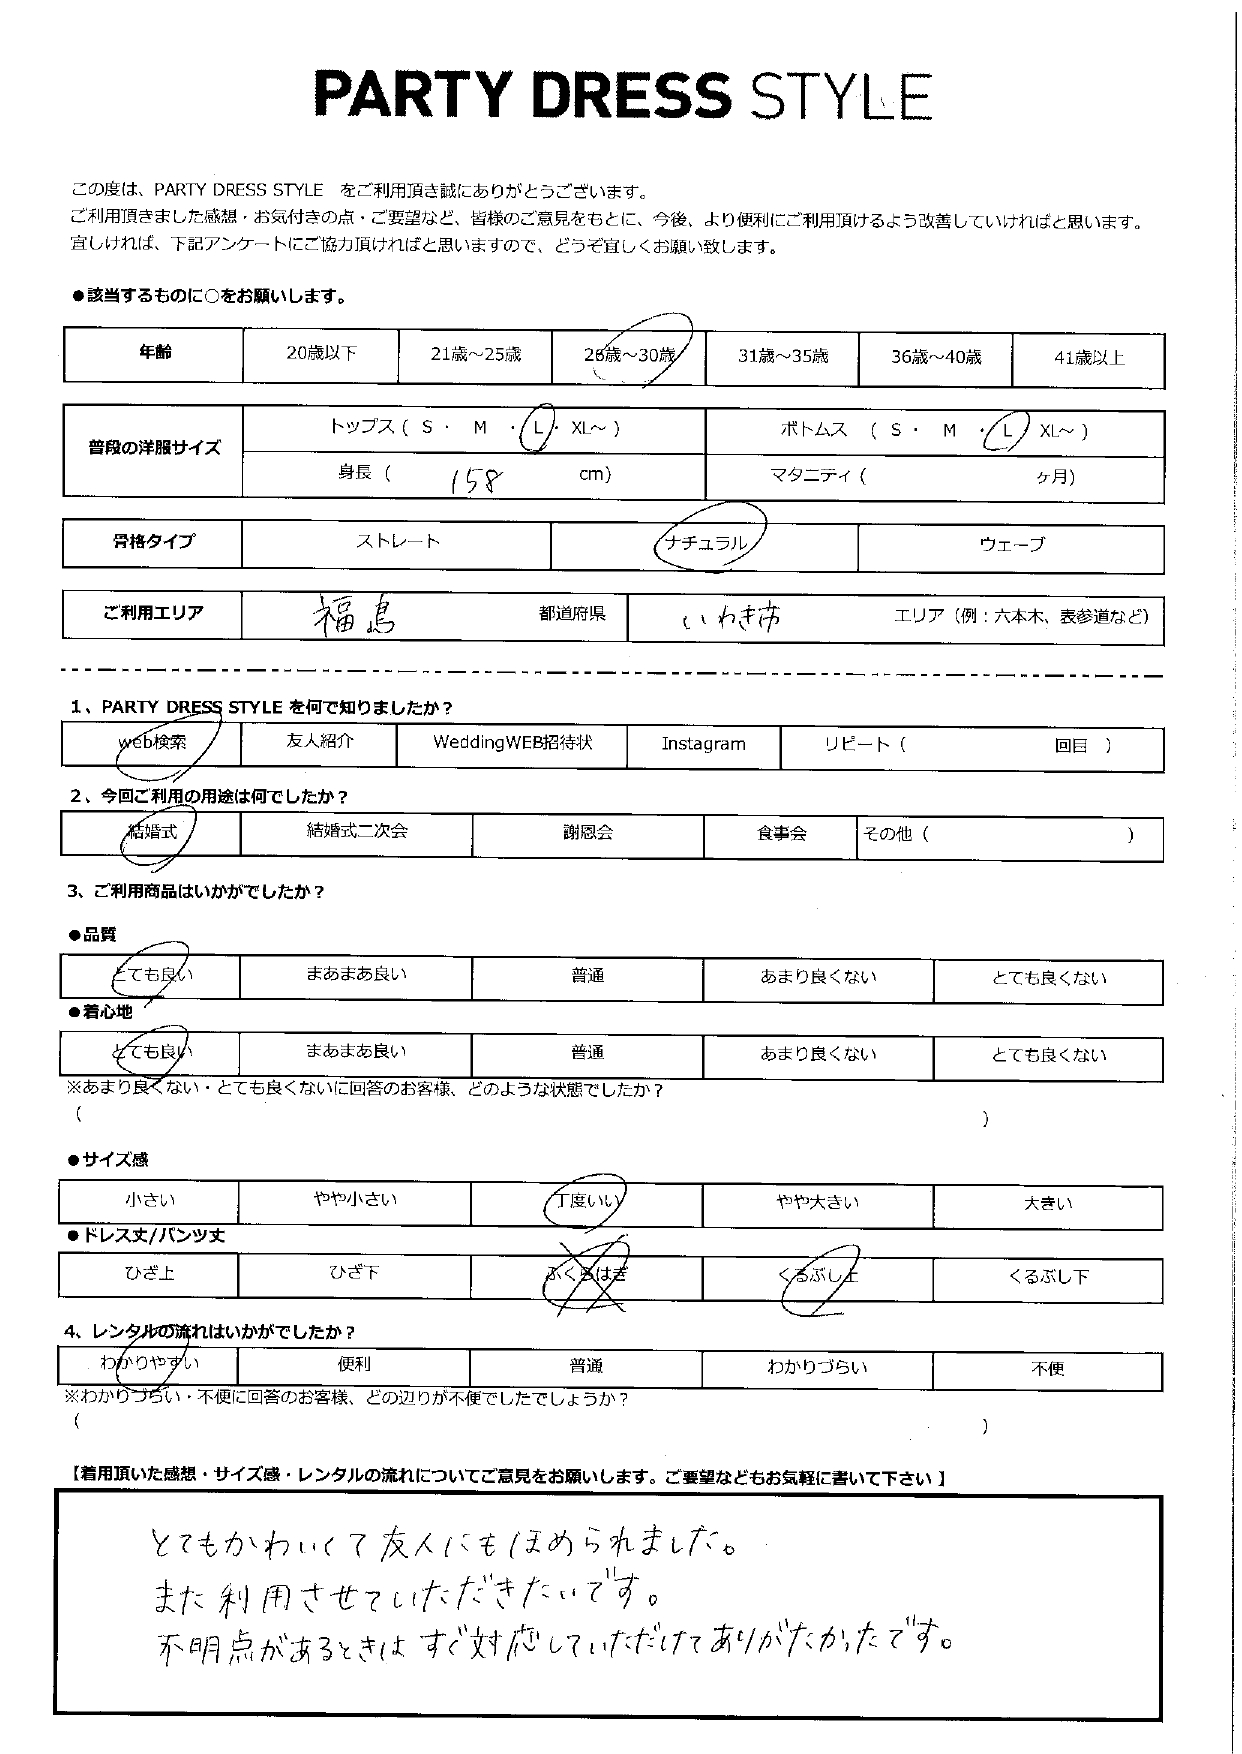 PARTY DRESS STYLE
この度は、PARTY DRESS STYLE をご利用頂き誠にありがとうございます。
ご利用頂きました感想・お気付きの点・ご要望など、皆様のご意見をもとに、今後、より便利にご利用頂けるよう改善していければと思います。
宜しければ、下記アンケートにご協力頂ければと思いますので、どうぞ宜しくお願い致します。
●該当するものに○をお願いします。
年齢 20歳以下 21歳～25歳 26歳～30歳 31歳～35歳 36歳～40歳 41歳以上
普段の洋服サイズ トップス ( S ・ M ・ L ・ XL～ ) ボトムス ( S ・ M ・ L XL～ )
身長 ( 158 cm) マタニティ ( ヶ月)
骨格タイプ ストレート ナチュラル ウェーブ
ご利用エリア 福島 都道府県 いわき市 エリア（例：六本木、表参道など）
1、PARTY DRESS STYLE を何で知りましたか？
web検索 友人紹介 WeddingWEB招待状 Instagram リピート ( 回目 )
2、今回ご利用の用途は何でしたか？
結婚式 結婚式二次会 謝恩会 食事会 その他 ( )
3、ご利用商品はいかがでしたか？
●品質
とても良い まあまあ良い 普通 あまり良くない とても良くない
●着心地
とても良い まあまあ良い 普通 あまり良くない とても良くない
※あまり良くない・とても良くないに回答のお客様、どのような状態でしたか？
( )
●サイズ感
小さい やや小さい 丁度いい やや大きい 大きい
●ドレス丈/パンツ丈
ひざ上 ひざ下 ふくらはぎ くるぶし上 くるぶし下
4、レンタルの流れはいかがでしたか？
わかりやすい 便利 普通 わかりづらい 不便
※わかりづらい・不便に回答のお客様、どの辺りが不便でしたでしょうか？
( )
【着用頂いた感想・サイズ感・レンタルの流れについてご意見をお願いします。ご要望などもお気軽に書いて下さい】
とてもかわいくて友人にもほめられました。
また利用させていただきたいです。
不明点があるときはすぐ対応していただけてありがたかったです。